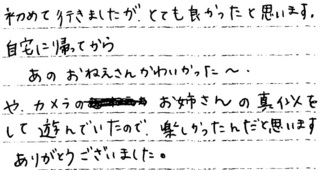 初めて行きましたが とても良かったと思います。
自宅に帰ってから
あの おねえさんかわいかった〜.
や、カメラの お姉さんの真似を
して 遊んでいたので、楽しかったんだと思います
ありがとうございました。